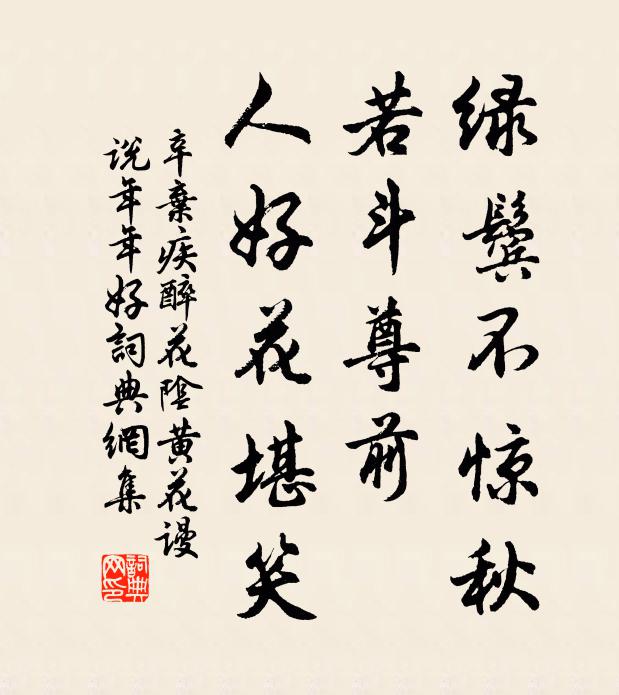 绿鬓不惊秋
若斗尊前
人好花堪笑
辛棄疾醉花陰黄花谩
说年年好詞典網集
詞典
网印